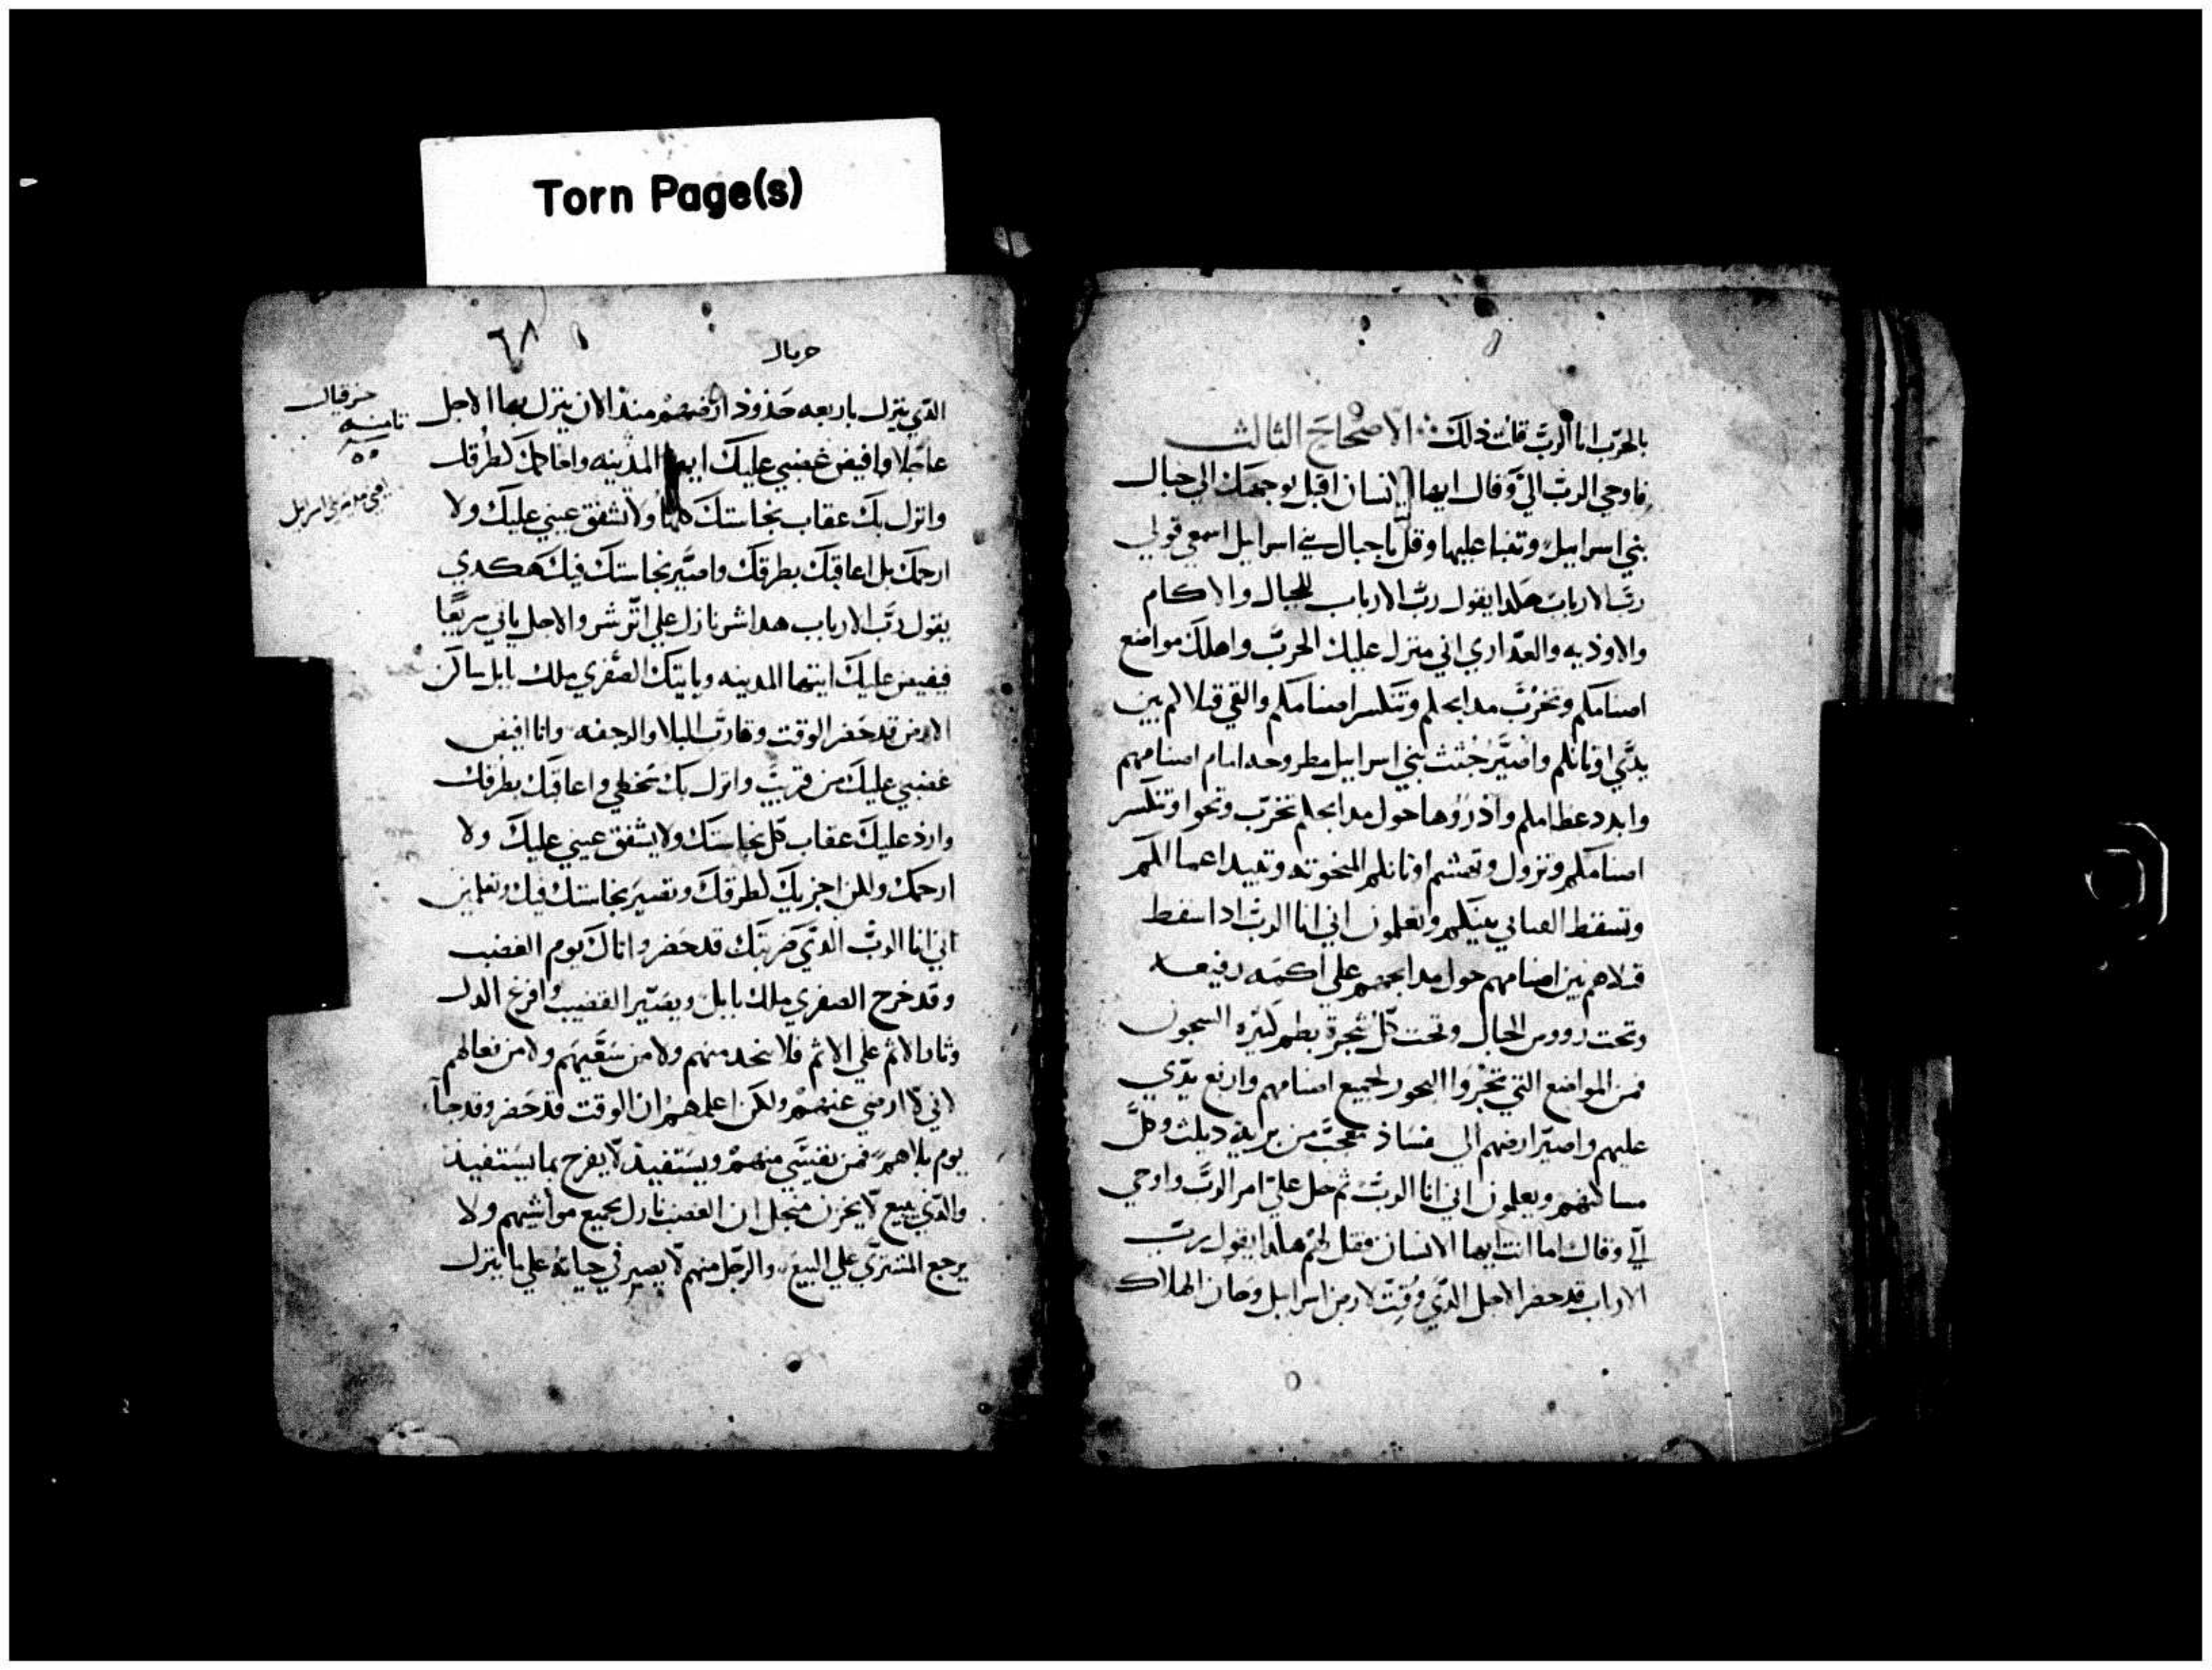 Torn Page(s)
بالحرب انا الرب قلت ذلك الاصحاح الثالث
فاوحي الرب الي وقال ايها الانسان اقبل بوجهك الي جبال
بني اسراييل وتنبا عليها وقل يا جبال بني اسراييل اسمعي قولي
رب الارباب هكدا يقول رب الارباب للجبال والاكام
والاوديه والعداري اني منزل عليك الحرب واهلك مواضع
اصنامكم وتخرب مدابحكم وتنكسر اصنامكم والقي قتلاكم بين
يدي اوثانكم واصير جثث بني اسراييل مطروحه امام اصنامهم
وابدد عظامكم واذروها حول مدابحكم تخرب وتحوا وتنكسر
اصنامكم وتزول وتهشم اوثانكم المنحوته وتبيد اعمالكم
وتسقط القتلي بينكم وتعلمون اني انا الرب ادا سقط
قتلاهم بين اصنامهم حول مدابحهم علي اكمه رفيعه
وتحت رووس الجبال وتحت كل شجرة بطم كثيره السجون
فمن المواضع التي بخروا البخور لجميع اصنامهم وارفع يدي
عليهم واصير ارضهم الي فساد من بريه ديلث وكل
مساكنهم ويعلمون اني انا الرب ثم حل علي امر الرب واوحي
الي وقال اما انت ايها الانسان فقل لهم هكدا يقول رب
الارباب قد حضر الاجل الدي وقت لارض اسراييل وحان الهلاك
٦٨
حزقيال
ثامنه
الدي ينزل باربعه حدود ارضهم منذ الان ينزل بها الاجل
عاجلا وافيض غضبي عليك ايها المدينه واعاقبك لطرقك
وانزل بك عقاب نجاستك كلها ولا تشفق عيني عليك ولا
ارحمك بل اعاقبك بطرقك واصير نجاستك فيك هكدي
يقول رب الارباب هدا شر نازل علي اثر شر والاجل ياتي سريعا
فيفيض عليك ايتها المدينه وياتيك الصفري ملك بابل ياساكن
الارض قد حضر الوقت وقارب البلا والرجفه وانا افيض
غضبي عليك من قريب وانزل بك سخطي واعاقبك بطرقك
وارد عليك عقاب كل نجاستك ولا يشفق عيني عليك ولا
ارحمك ولكن اجزيك لطرقك وتصير نجاستك فيك وتعلمين
اني انا الرب الدي ضربتك قد حضر واتاك يوم الغضب
وقد خرج الصفري ملك بابل ويصير القضيب وافرغ الدل
وثار الاثم علي الاثم فلا نجد منهم ولا من سقيهم ولا من فعالهم
لاني لا ارضي عنهم ولكن اعلمهم ان الوقت قد حضر وقد جآ
يوم بلاهم فمن يقتني منهم ويستفيد لا يفرح بما يستفيد
والدي يبيع لا يحزن منجل ان الغضب نازل بجميع مواشيهم ولا
يرجع المشتري علي البيع والرجل منهم لا يصير في حياته علي ما ينزل